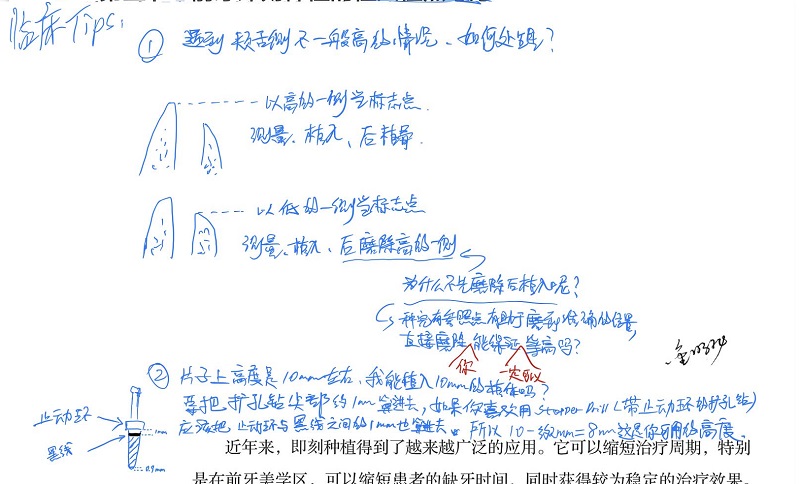 临床Tips:
① 遇到颊舌侧不一般高的情况、如何处理?
以高的一侧当标志点.
测量、植入、后植骨.
以低的一侧当标志点
测量、植入、后磨除高的一侧
为什么不先磨除后植入呢?
种完有参照点有助于磨到准确的位置,
直接磨除,能保证等高吗?
你
一定可以
② 片子上高度是10mm左右、我能植入10mm的植体吗?
要把扩孔钻尖部约1mm算进去,如果你喜欢用Stopper Drill(带止动环的扩孔钻)
止动环
应该把止动环与黑线之间的1mm也算进去。所以10-2mm=8mm这是你可用的高度.
1mm
黑线
0.9mm
近年来,即刻种植得到了越来越广泛的应用。它可以缩短治疗周期,特别
是在前牙美学区,可以缩短患者的缺牙时间,同时获得较为稳定的治疗效果。